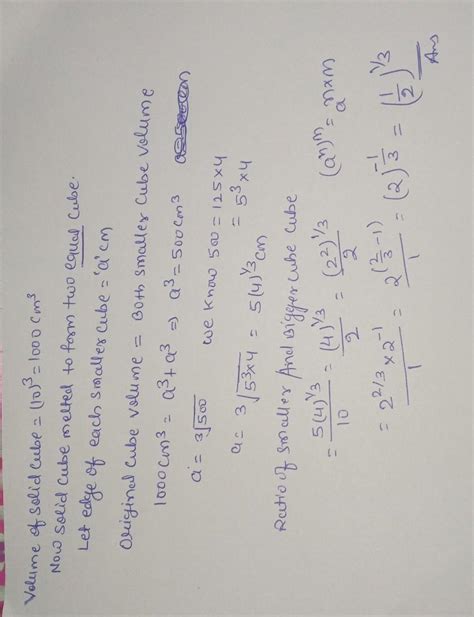 Volume of solid cube = (10)³ = 1000 cm³
Now solid cube melted to form two equal cube.
Let edge of each smaller cube = 'a' cm
Original cube volume = Both smaller cube volume
1000 cm³ = a³ + a³ ⇒ a³ = 500 cm³
a = 3√500 we know 500 = 125 × 4
= 5³ × 4
a = 3√5³×4 = 5(4)^1/3 cm
Ratio of smaller And Bigger cube cube
= 5(4)^1/3 / 10 = (4)^1/3 / 2 = (2²)^1/3 / 2 (aⁿ)ᵐ = a^n×m
= 2^2/3 × 2^-1 / 1 = 2^(2/3 - 1) / 1 = (2)^-1/3 = (1/2)^1/3
Ans